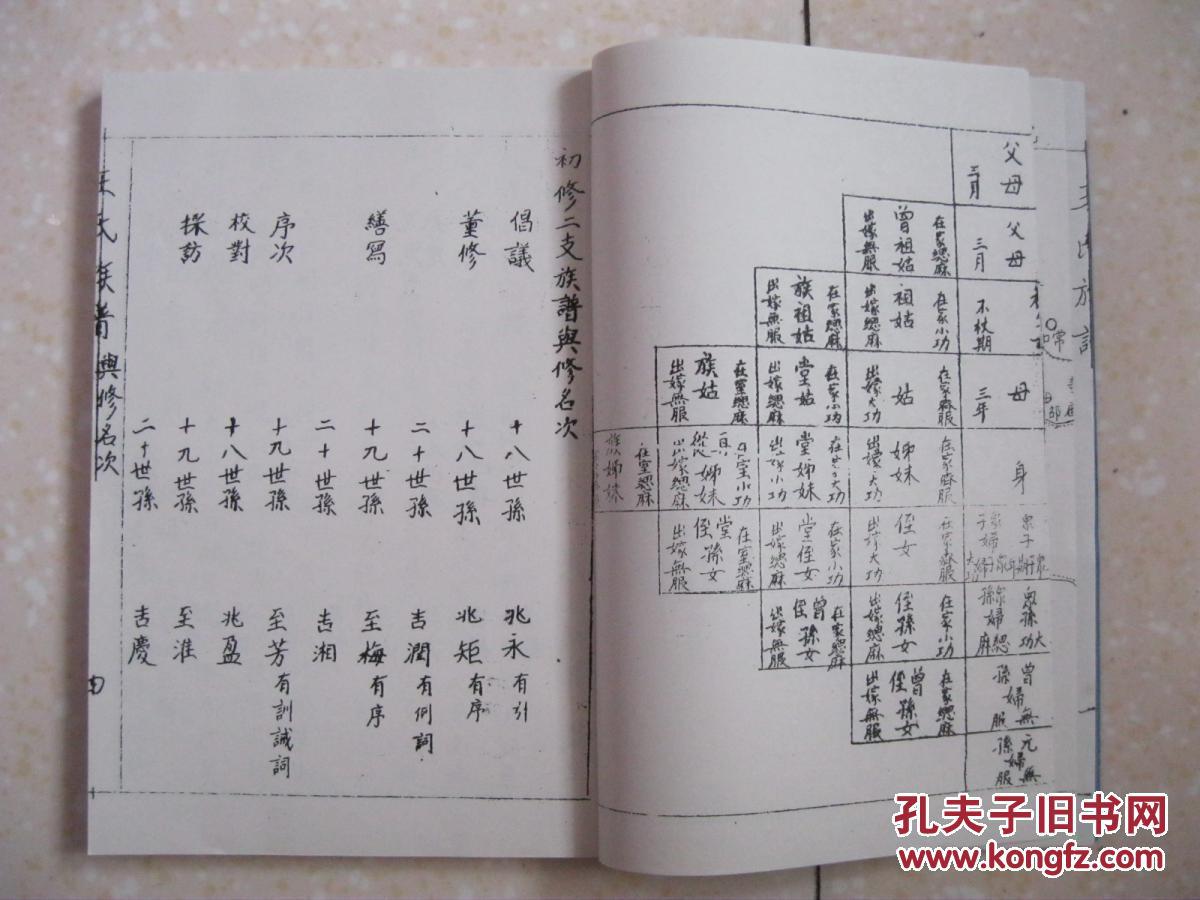 初修二支族譜與修名次
倡議 十八世孫 兆永有引
董修 十八世孫 兆矩有序
二十世孫 吉潤有例詞
繕寫 十九世孫 至梅有序
二十世孫 吉湘
序次 十九世孫 至芳有訓誡詞
校對 十八世孫 兆盈
採訪 十九世孫 至淮
二十世孫 吉慶
氏族譜 與修名次
父母 三月
父母 三月
不杖期
母 三年
身
曾孫婦無服
元孫婦無服
在家緦麻 曾祖姑 出嫁無服
在家小功 祖姑 出嫁緦麻
在家緦麻 族祖姑 出嫁無服
姑 出嫁大功
在家小功 堂姑 出嫁緦麻
在室緦麻 族姑 出嫁無服
姊妹 出嫁大功
堂姊妹 出嫁小功
從姊妹 出嫁緦麻
在室緦麻 族姊妹
姪女 出嫁大功
在家小功 堂姪女 出嫁緦麻
在室緦麻 堂姪孫女 出嫁無服
在家小功 姪孫女 出嫁緦麻
在家緦麻 曾姪孫女 出嫁無服
在家緦麻 曾姪孫女 出嫁無服
孔夫子旧书网
www.kongfz.com